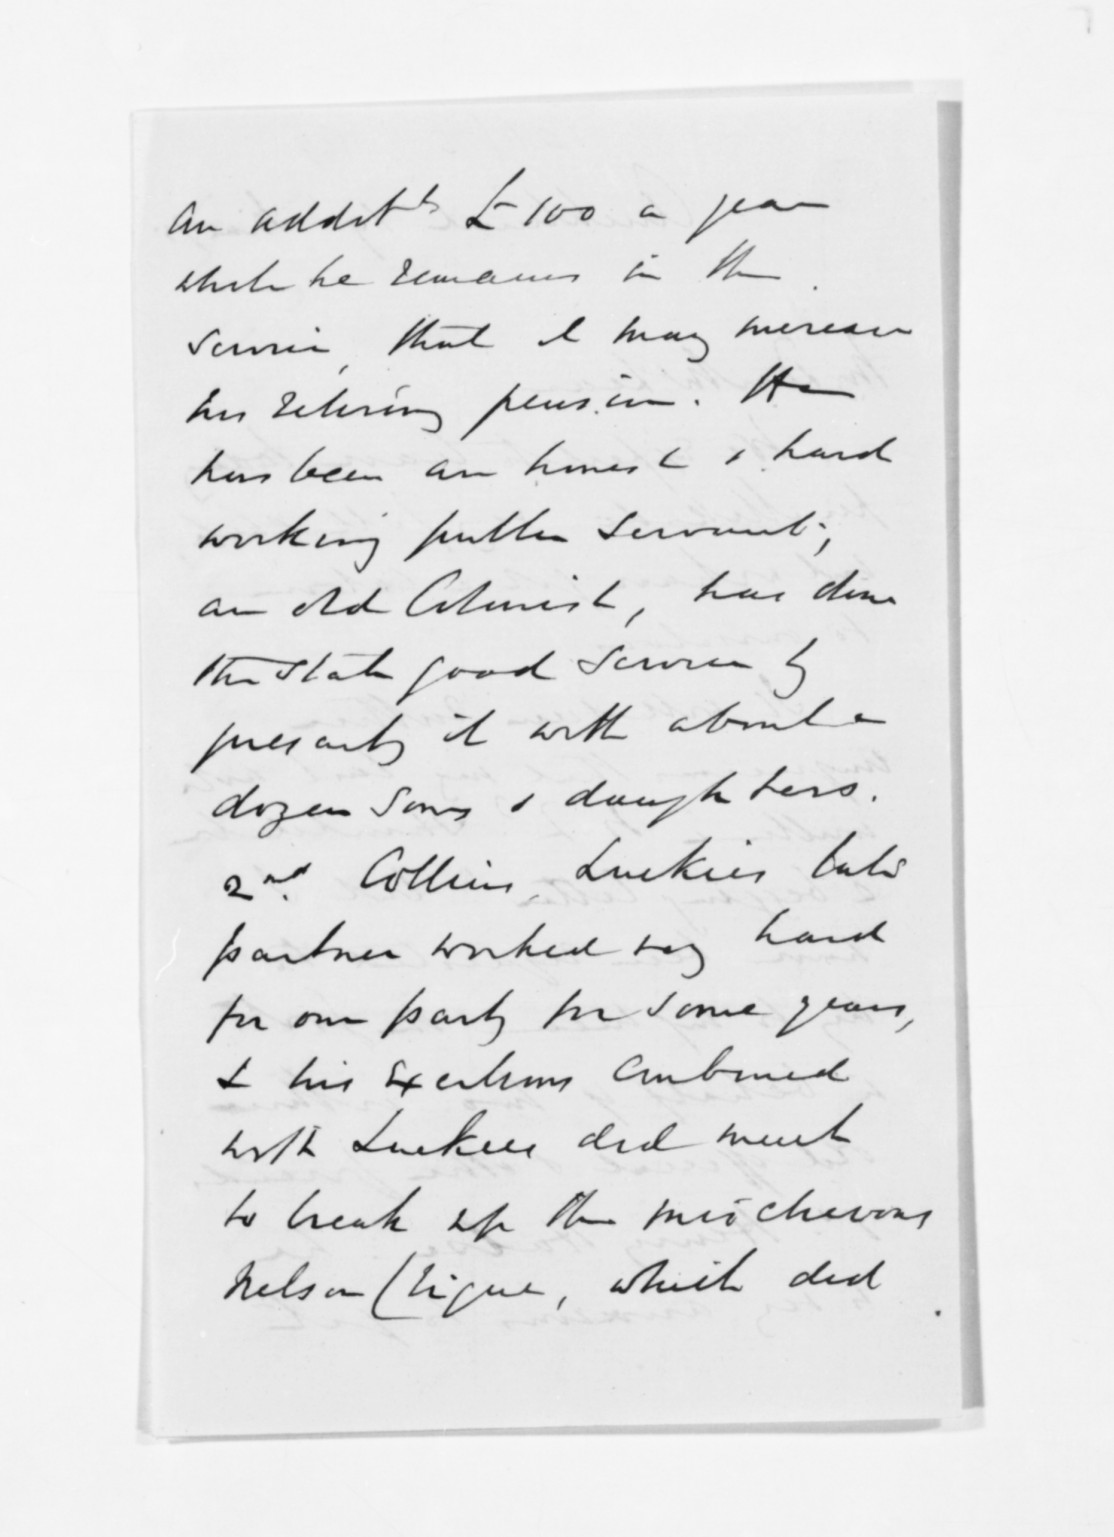 an addit^l £100 a year
while he remains in the
Service, that it may increase
his retiring pension. He
has been an honest & hard
working public Servant;
an old Colonist, has done
the State good Service by
presentg it with about a
dozen Sons & daughters.
2nd. Collins, Luckies late
partner worked very hard
for our party for some years,
& his exertions combined
with Luckies did much
to break up the mischievous
Nelson Clique, which did